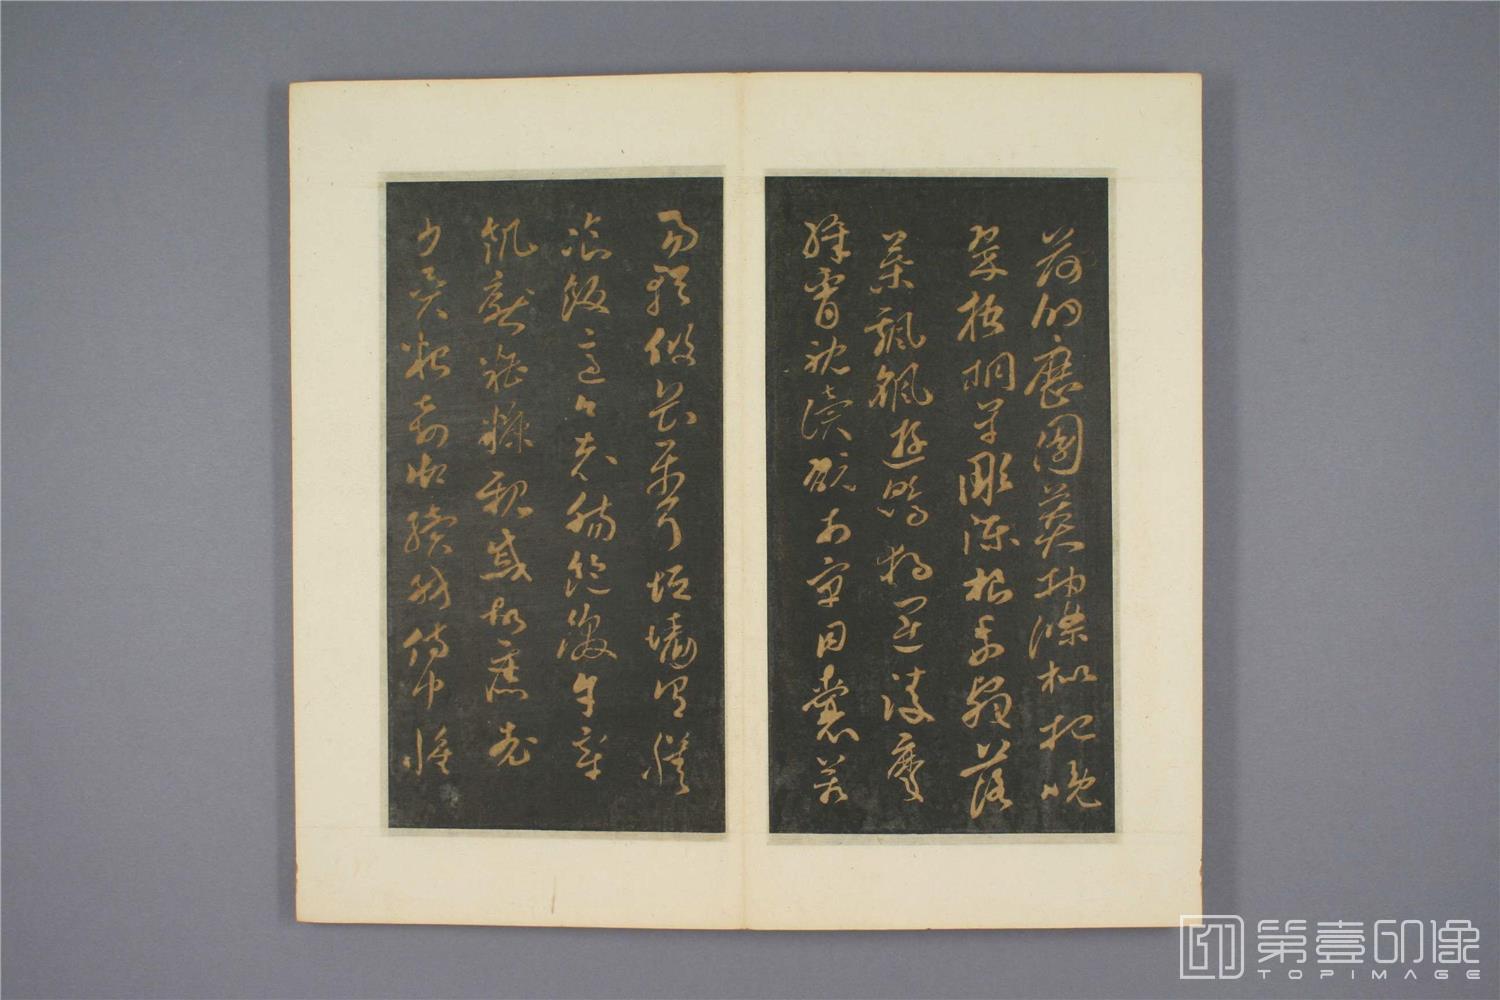 荷的歷園莽抽條枇杷晚
翠梧桐早彫陳根委翳落
葉飄颻遊鵾獨運凌摩
絳霄耽讀翫市寓目囊箱
易輶攸畏屬耳垣牆具膳
飡飯適口充腸飽飫烹宰
飢厭糟糠親戚故舊老
少異糧妾御績紡侍巾帷
第壹印像
TOPIMAGE